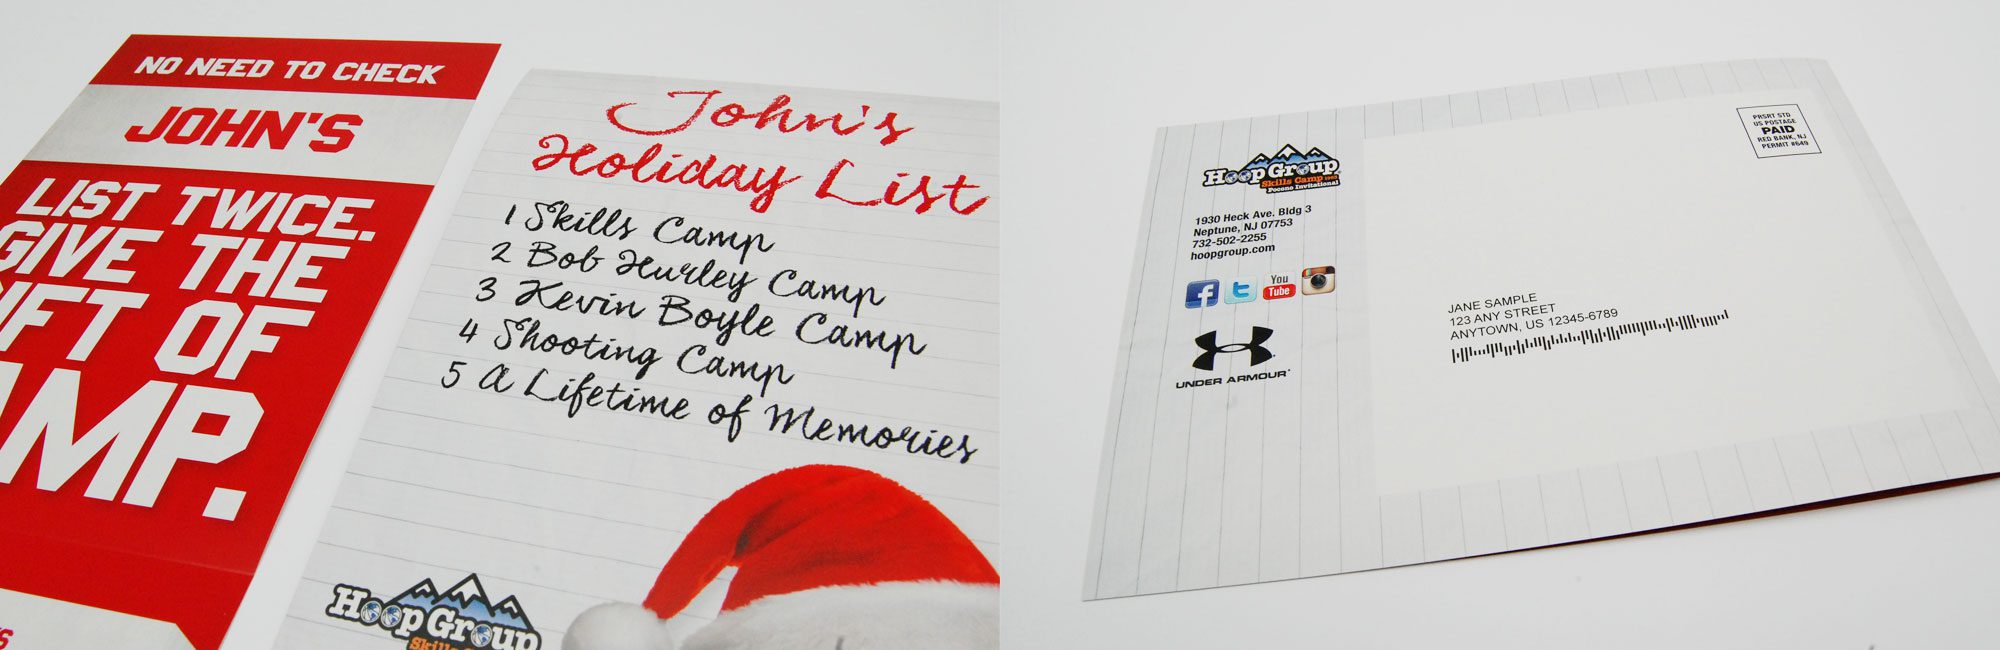 NO NEED TO CHECK
JOHN'S
LIST TWICE.
GIVE THE
GIFT OF
CAMP.
John's
Holiday List
1 Skills Camp
2 Bob Hurley Camp
3 Kevin Boyle Camp
4 Shooting Camp
5 A Lifetime of Memories
Hoop Group
Skills
Hoop Group
Skills Camp
Pocono Invitational
1930 Heck Ave. Bldg 3
Neptune, NJ 07753
732-502-2255
hoopgroup.com
f
t
You
Tube
UNDER ARMOUR
PRSRT STD
US POSTAGE
PAID
RED BANK, NJ
PERMIT #649
JANE SAMPLE
123 ANY STREET
ANYTOWN, US 12345-6789